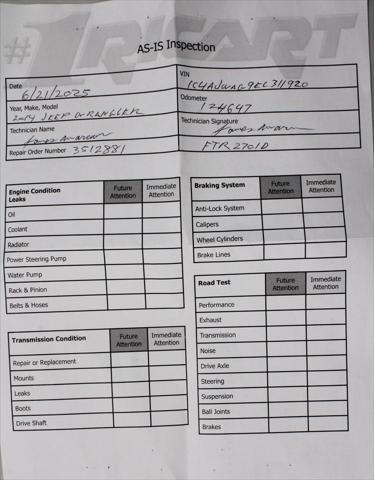 #1RICART
AS-IS Inspection
Date 6/21/2025
VIN 1C4AJWAG9EL311920
Year, Make, Model 2014 JEEP WRANGLER
Odometer 124647
Technician Name
Technician Signature
Repair Order Number 3512881
FTR2701D
Engine Condition Leaks Future Attention Immediate Attention
Oil
Coolant
Radiator
Power Steering Pump
Water Pump
Rack & Pinion
Belts & Hoses
Transmission Condition Future Attention Immediate Attention
Repair or Replacement
Mounts
Leaks
Boots
Drive Shaft
Braking System Future Attention Immediate Attention
Anti-Lock System
Calipers
Wheel Cylinders
Brake Lines
Road Test Future Attention Immediate Attention
Performance
Exhaust
Transmission
Noise
Drive Axle
Steering
Suspension
Ball Joints
Brakes